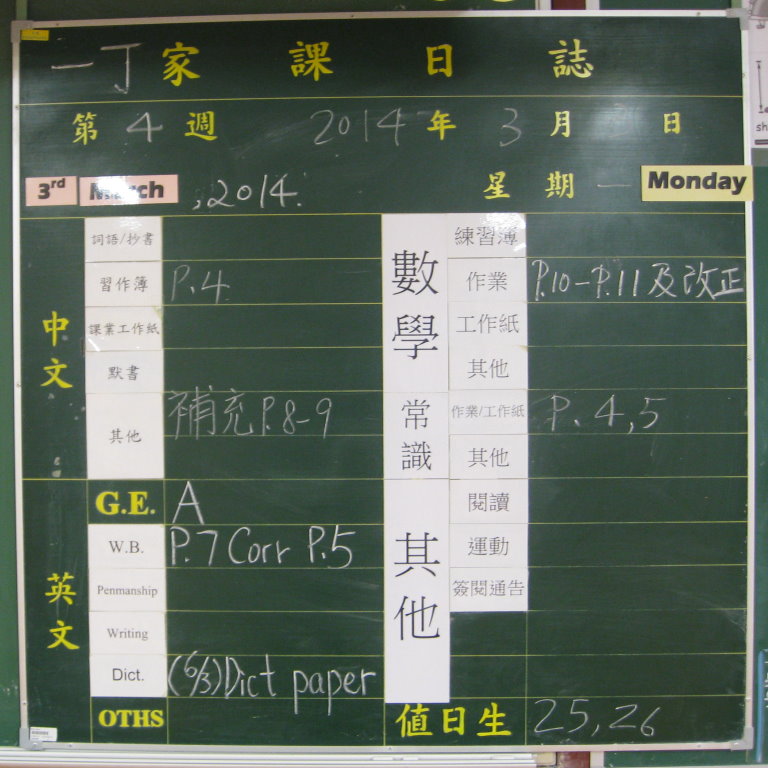 一丁家課日誌
第4週 2014年3月3日
3rd March , 2014. 星期一 Monday
中文
詞語/抄書
習作簿 P.4
課業工作紙
默書
其他 補充P.8-9
英文
G.E. A
W.B. P.7 Corr P.5
Penmanship
Writing
Dict. (6/3)Dict paper
OTHS
數學
練習簿
作業 P.10-P.11及改正
工作紙
其他
常識
作業/工作紙 P.4,5
其他
其他
閱讀
運動
簽閱通告
值日生 25,26